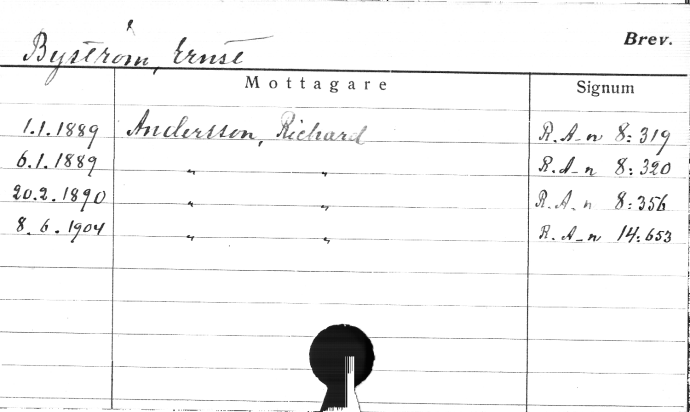 Byström, Ernst Brev.
Mottagare Signum
1.1.1889 Andersson, Richard R.A-n 8:319
6.1.1889 " " R.A-n 8:320
20.2.1890 " " R.A-n 8:356
8.6.1904 " " R.A-n 14:653